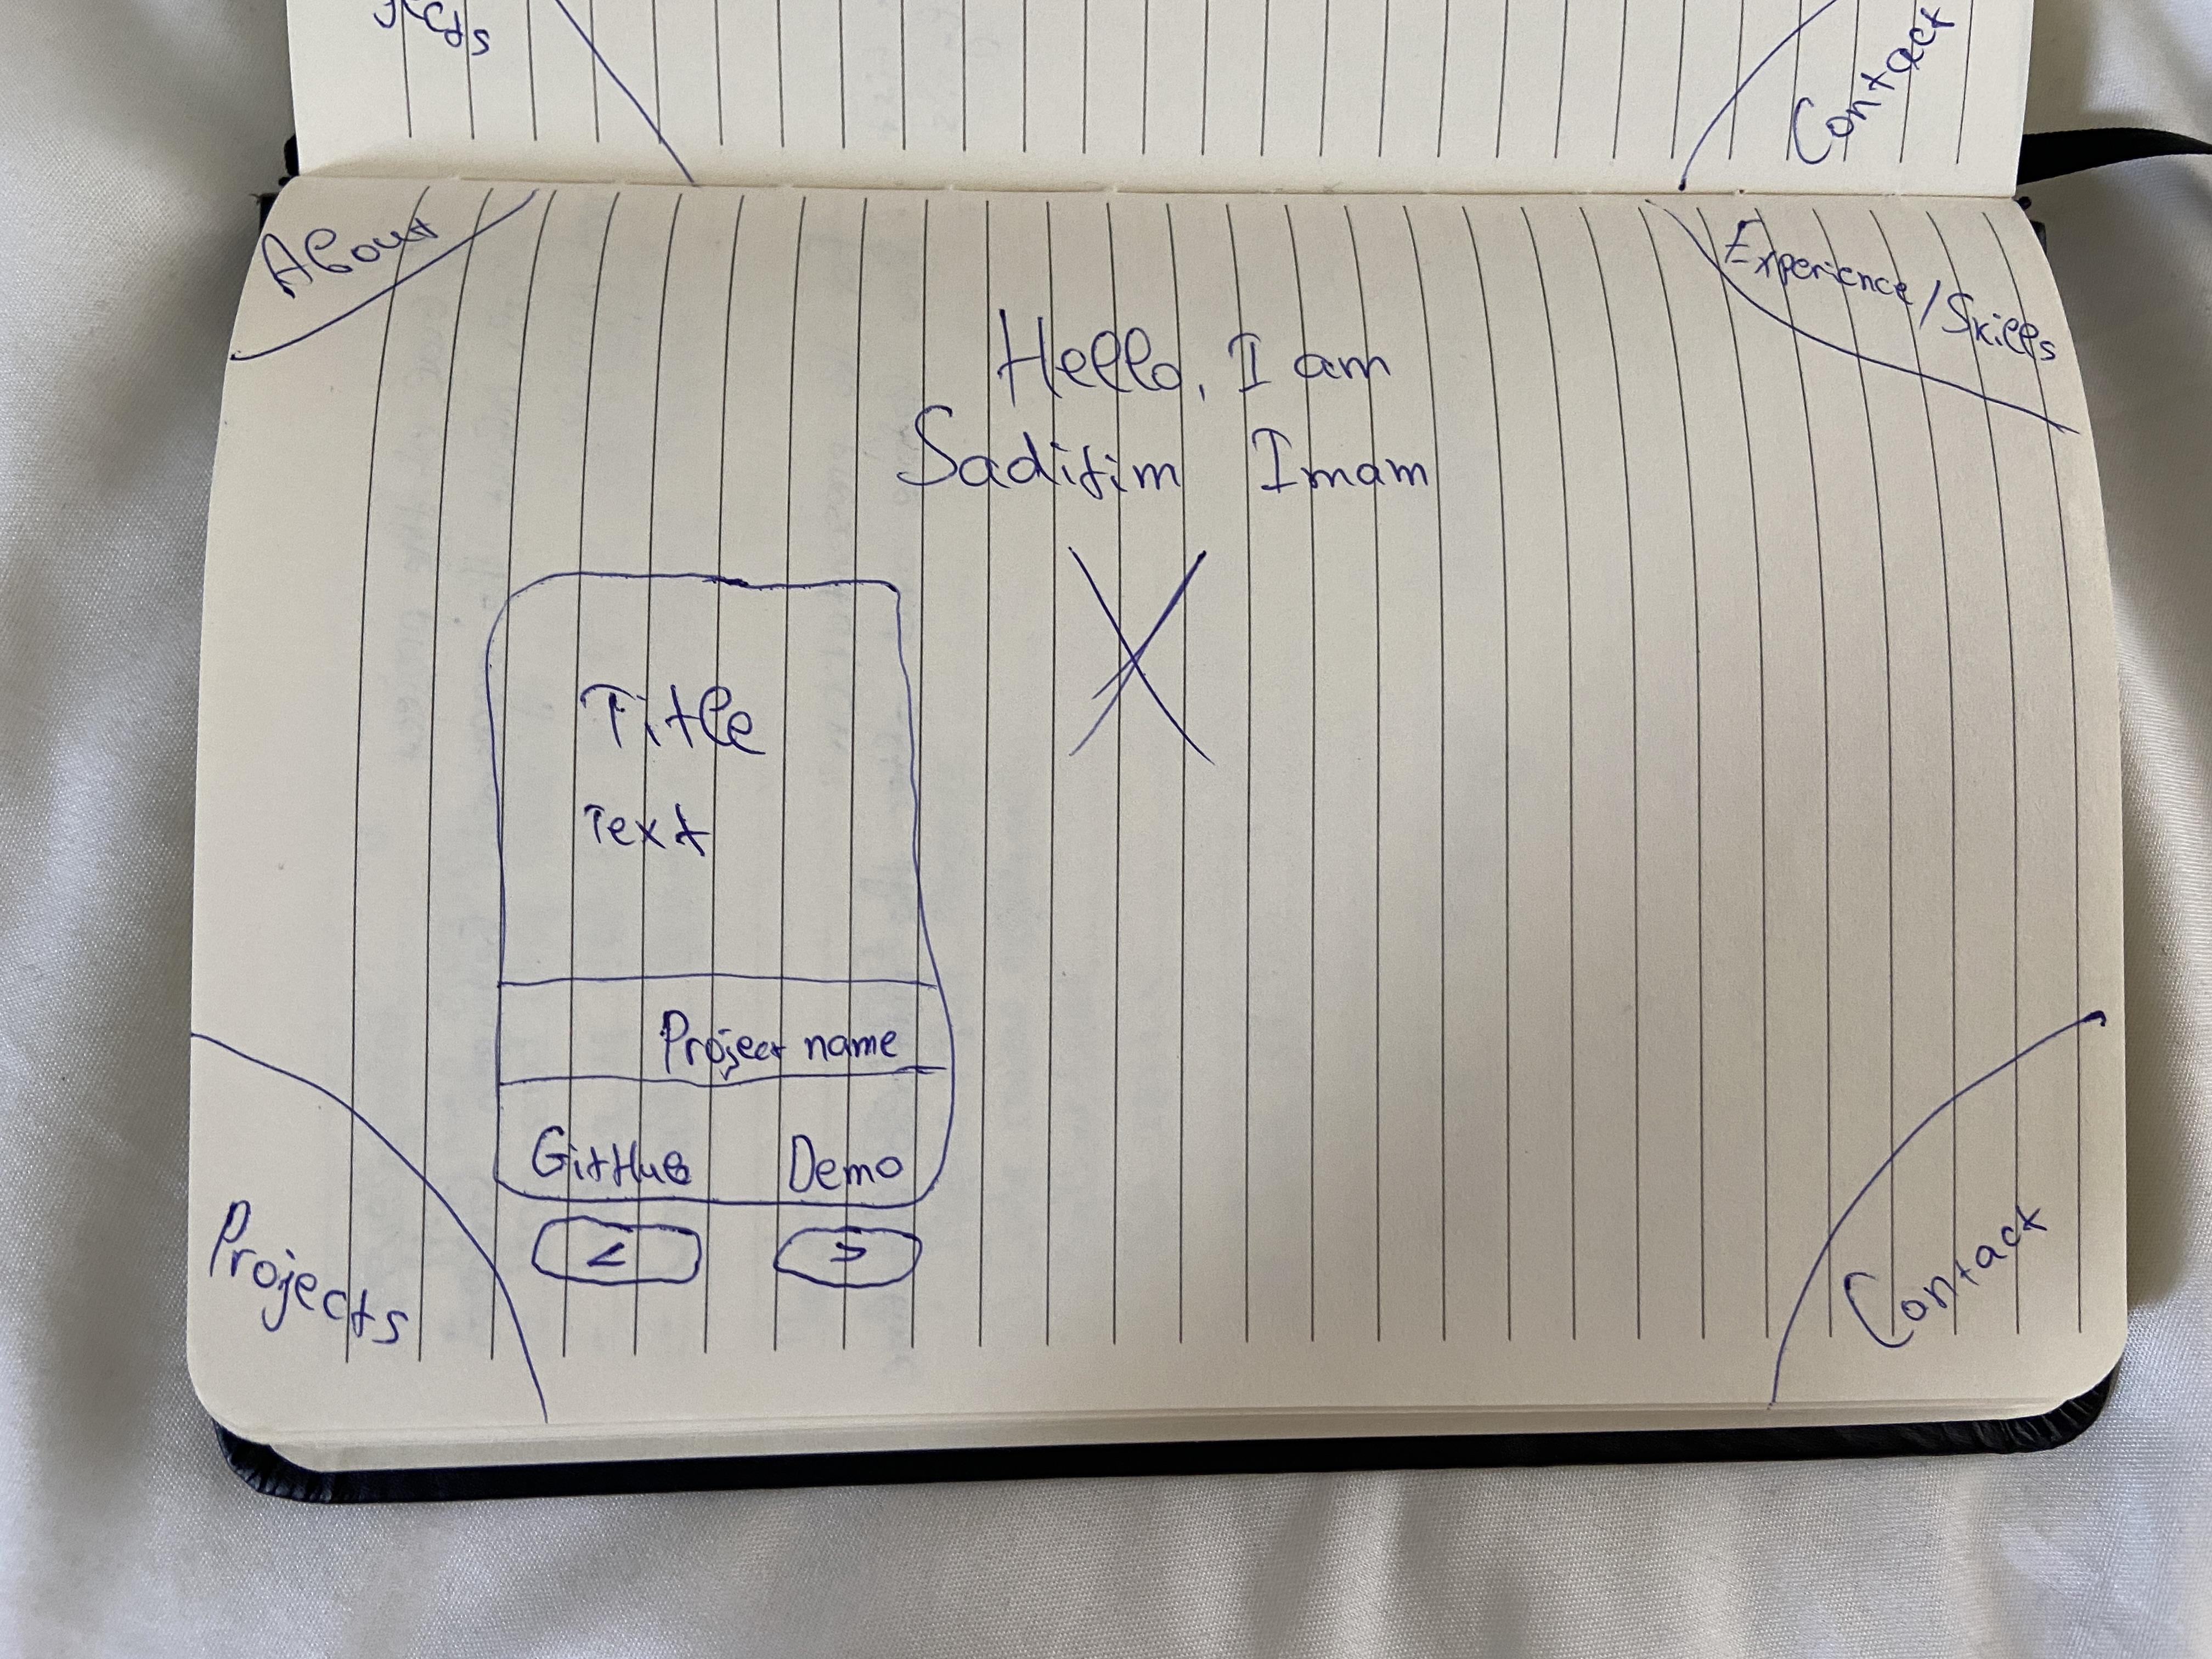 Contact
About
Experience/Skills
Hello, I am
Saditim Imam
X
Title
Text
Project name
GitHub Demo
< >
Projects
Contact